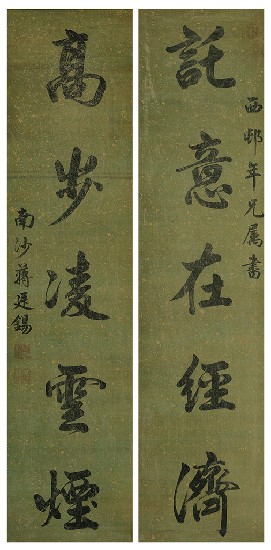 西邨年兄属書
託意在經濟
高步凌雲煙
南沙蔣廷錫